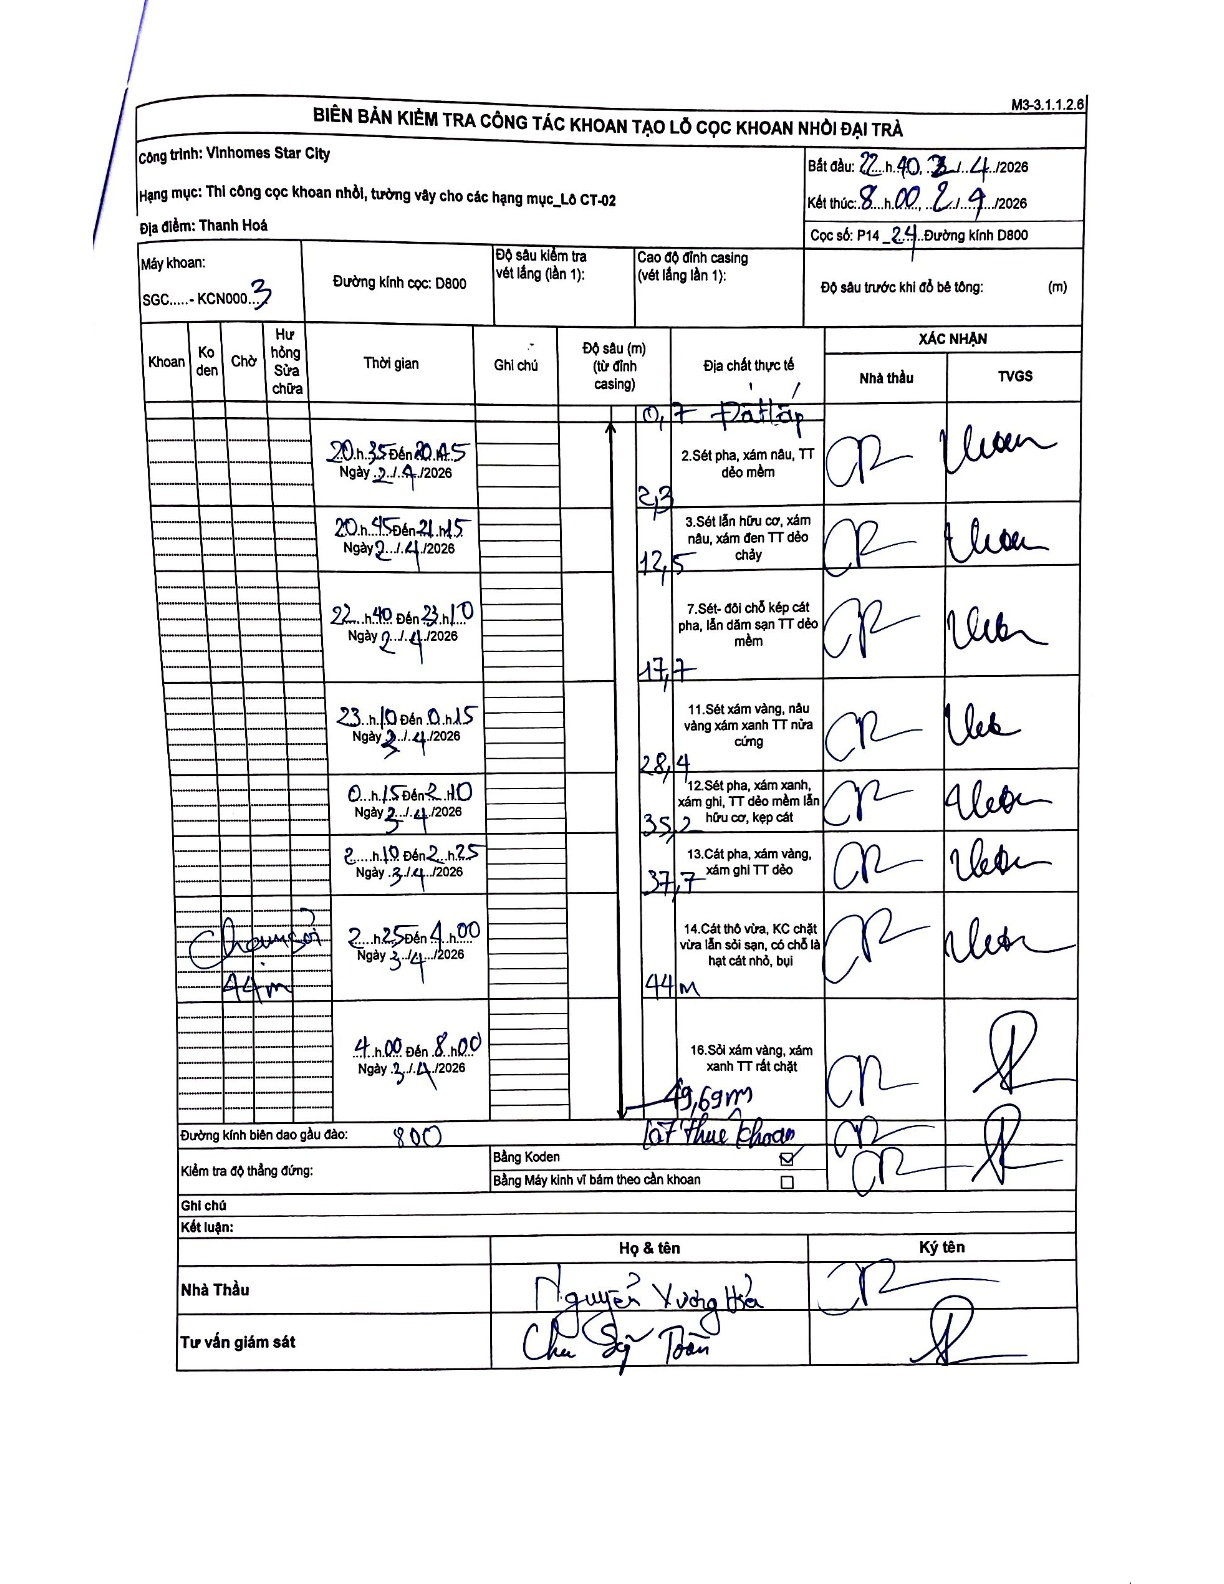 M3-3.1.1.2.6
BIÊN BẢN KIỂM TRA CÔNG TÁC KHOAN TẠO LỖ CỌC KHOAN NHỒI ĐẠI TRÀ
Công trình: Vinhomes Star City
Hạng mục: Thi công cọc khoan nhồi, tường vây cho các hạng mục_Lô CT-02
Địa điểm: Thanh Hoá
Bắt đầu: 22 h 40, 2/4/2026
Kết thúc: 8 h 00, 2/4/2026
Cọc số: P14_24 Đường kính D800
Máy khoan:
SGC.....- KCN000 3
Đường kính cọc: D800
Độ sâu kiểm tra vét lắng (lần 1):
Cao độ đỉnh casing (vét lắng lần 1):
Độ sâu trước khi đổ bê tông: (m)
Khoan Ko den Chờ Hư hỏng Sửa chữa Thời gian Ghi chú Độ sâu (m) (từ đỉnh casing) Địa chất thực tế XÁC NHẬN
Nhà thầu TVGS
0,7 Đất lấp
20 h 35 Đến 20 h 45
Ngày 2/4/2026
2.Sét pha, xám nâu, TT
dẻo mềm
2,3
20 h 45 Đến 21 h 15
Ngày 2/4/2026
3.Sét lẫn hữu cơ, xám
nâu, xám đen TT dẻo
chảy
12,5
22 h 40 Đến 23 h 10
Ngày 2/4/2026
7.Sét- đôi chỗ kép cát
pha, lẫn dăm sạn TT dẻo
mềm
17,7
23 h 10 Đến 0 h 15
Ngày 3/4/2026
11.Sét xám vàng, nâu
vàng xám xanh TT nửa
cứng
28,4
0 h 15 Đến 2 h 10
Ngày 3/4/2026
12.Sét pha, xám xanh,
xám ghi, TT dẻo mềm lẫn
hữu cơ, kẹp cát
35,2
2 h 10 Đến 2 h 25
Ngày 3/4/2026
13.Cát pha, xám vàng,
xám ghi TT dẻo
37,7
Chạm sỏi
44m
2 h 25 Đến 4 h 00
Ngày 3/4/2026
14.Cát thô vừa, KC chặt
vừa lẫn sỏi sạn, có chỗ là
hạt cát nhỏ, bụi
44m
4 h 00 Đến 8 h 00
Ngày 3/4/2026
16.Sỏi xám vàng, xám
xanh TT rất chặt
49,69m
Đường kính biên dao gầu đào: 800
khoan
Kiểm tra độ thẳng đứng:
Bằng Koden ☑
Bằng Máy kinh vĩ bám theo cần khoan ☐
Ghi chú
Kết luận:
Họ & tên Ký tên
Nhà Thầu Nguyễn Xương
Tư vấn giám sát Chu Sỹ Toàn